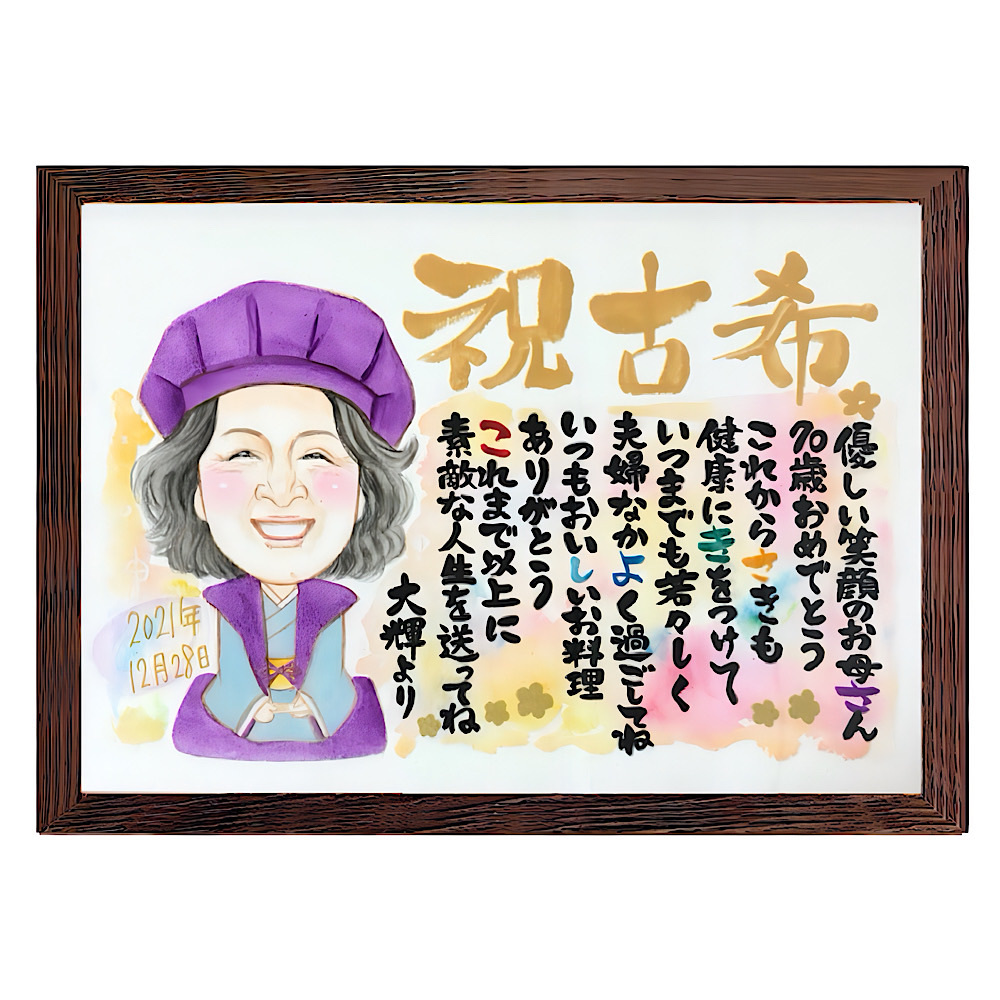 祝古希
優しい笑顔のお母さん
70歳おめでとう
これからさきも
健康にきをつけて
いつまでも若々しく
夫婦なかよく過ごしてね
いつもおいしいお料理
ありがとう
これまで以上に
素敵な人生を送ってね
大輝より
2021年
12月28日